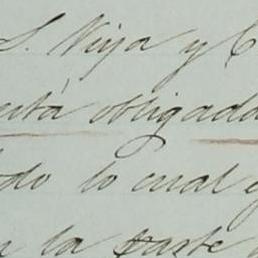 S. Vieja y C
está obligada
do lo cual e
a la parte